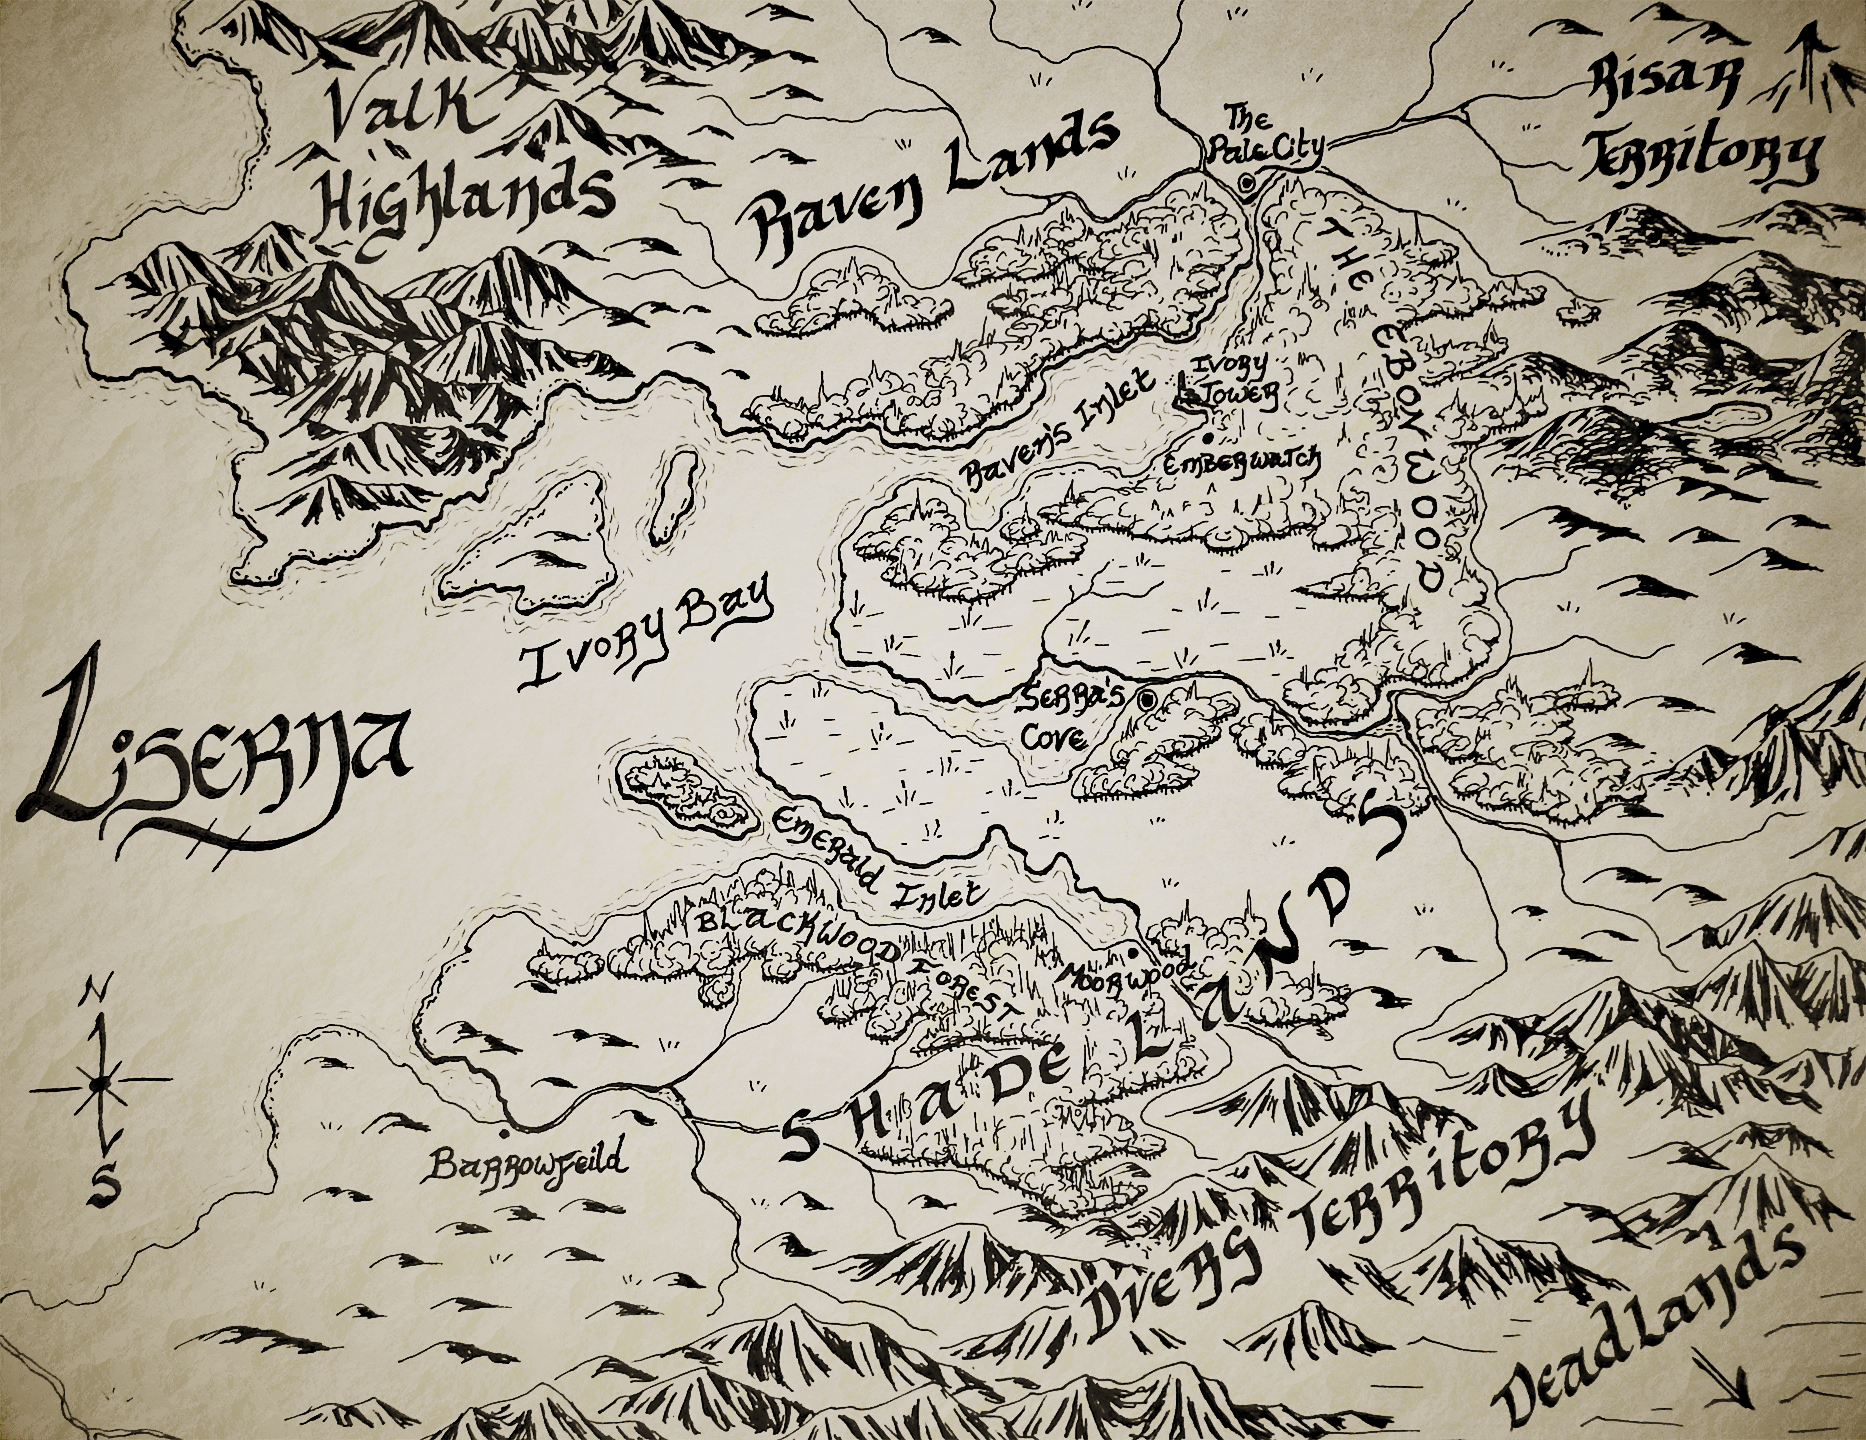 Valk
Highlands
Raven Lands
The
Pale City
Risar
Territory
THE EBON WOOD
Ivory
Tower
Raven's Inlet
Emberwatch
Ivory Bay
Liserna
Serra's
Cove
Emerald Inlet
Blackwood Forest
Moorwood
SHADE LANDS
N
S
Barrowfeild
Dvers Territory
Deadlands